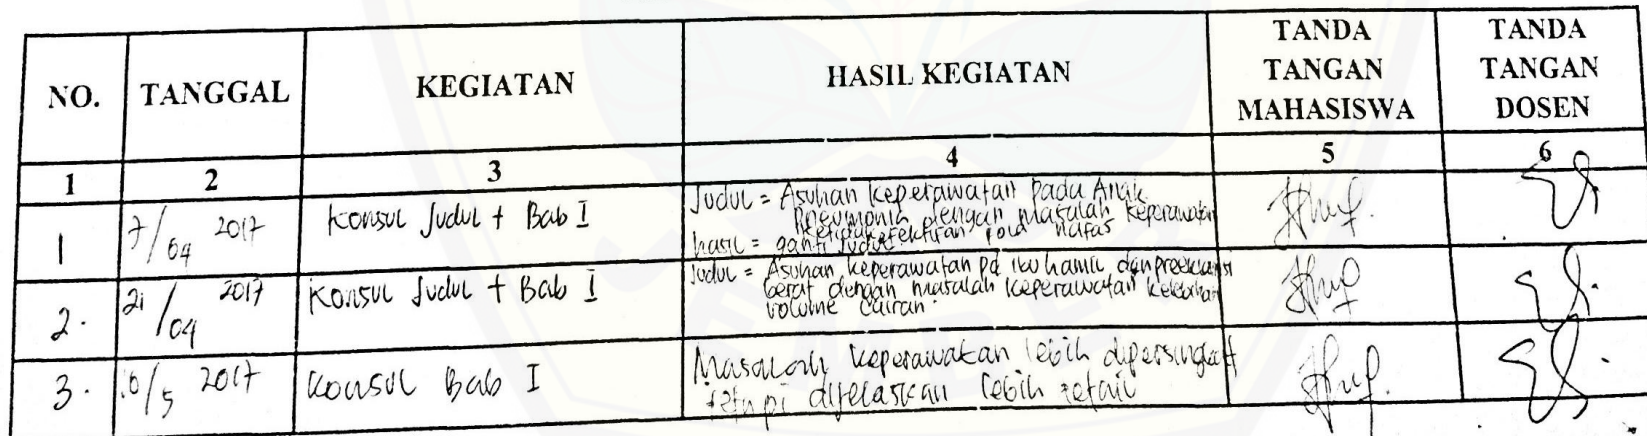 NO. TANGGAL KEGIATAN HASIL KEGIATAN TANDA TANGAN MAHASISWA TANDA TANGAN DOSEN
1 2 3 4 5 6
1 7/04 2017 Konsul Judul + Bab I Judul = Asuhan Keperawatan Pada Anak
Pneumonia dengan masalah Keperawatan
Ketidakefektifan pola nafas
hasil = ganti Judul
2. 21/04 2017 Konsul Judul + Bab I Judul = Asuhan Keperawatan pd ibu hamil dgn preeklamsi
berat dengan masalah keperawatan kelebihan
volume cairan.
3. /5 2017 Konsul Bab I Masalah keperawatan lebih dipersingkat
tetapi dijelaskan lebih detail